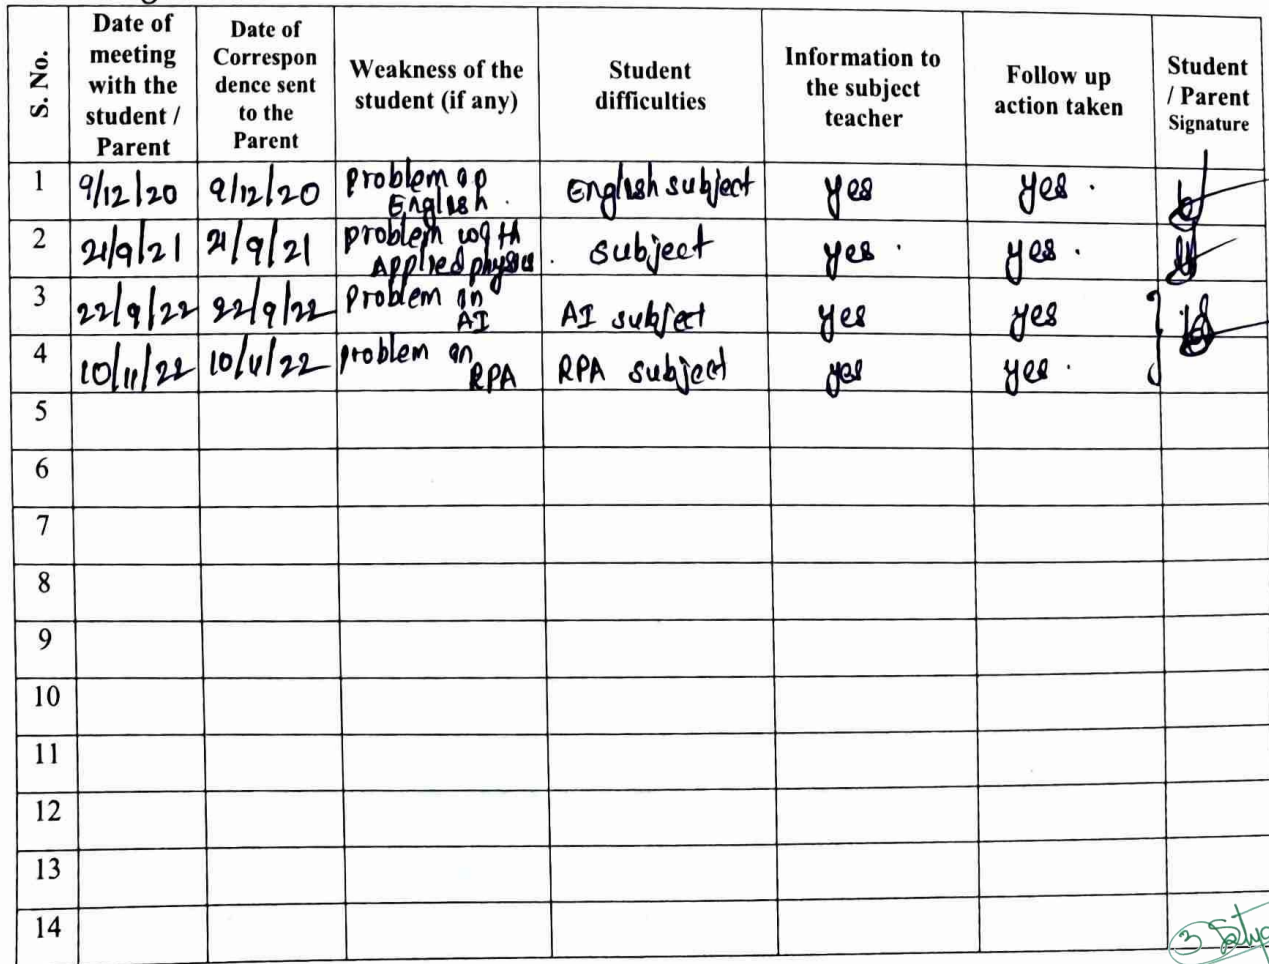 S. No.
Date of
meeting
with the
student /
Parent
Date of
Correspon
dence sent
to the
Parent
Weakness of the
student (if any)
Student
difficulties
Information to
the subject
teacher
Follow up
action taken
Student
/ Parent
Signature
1
9/12/20
9/12/20
problem in
English.
English subject
yes
yes.
2
21/9/21
21/9/21
problem with
Applied physics.
subject
yes.
yes.
3
22/9/22
22/9/22
problem in
AI
AI subject
yes
yes
4
10/11/22
10/11/22
problem in
RPA
RPA subject
yes
yes.
5
6
7
8
9
10
11
12
13
14